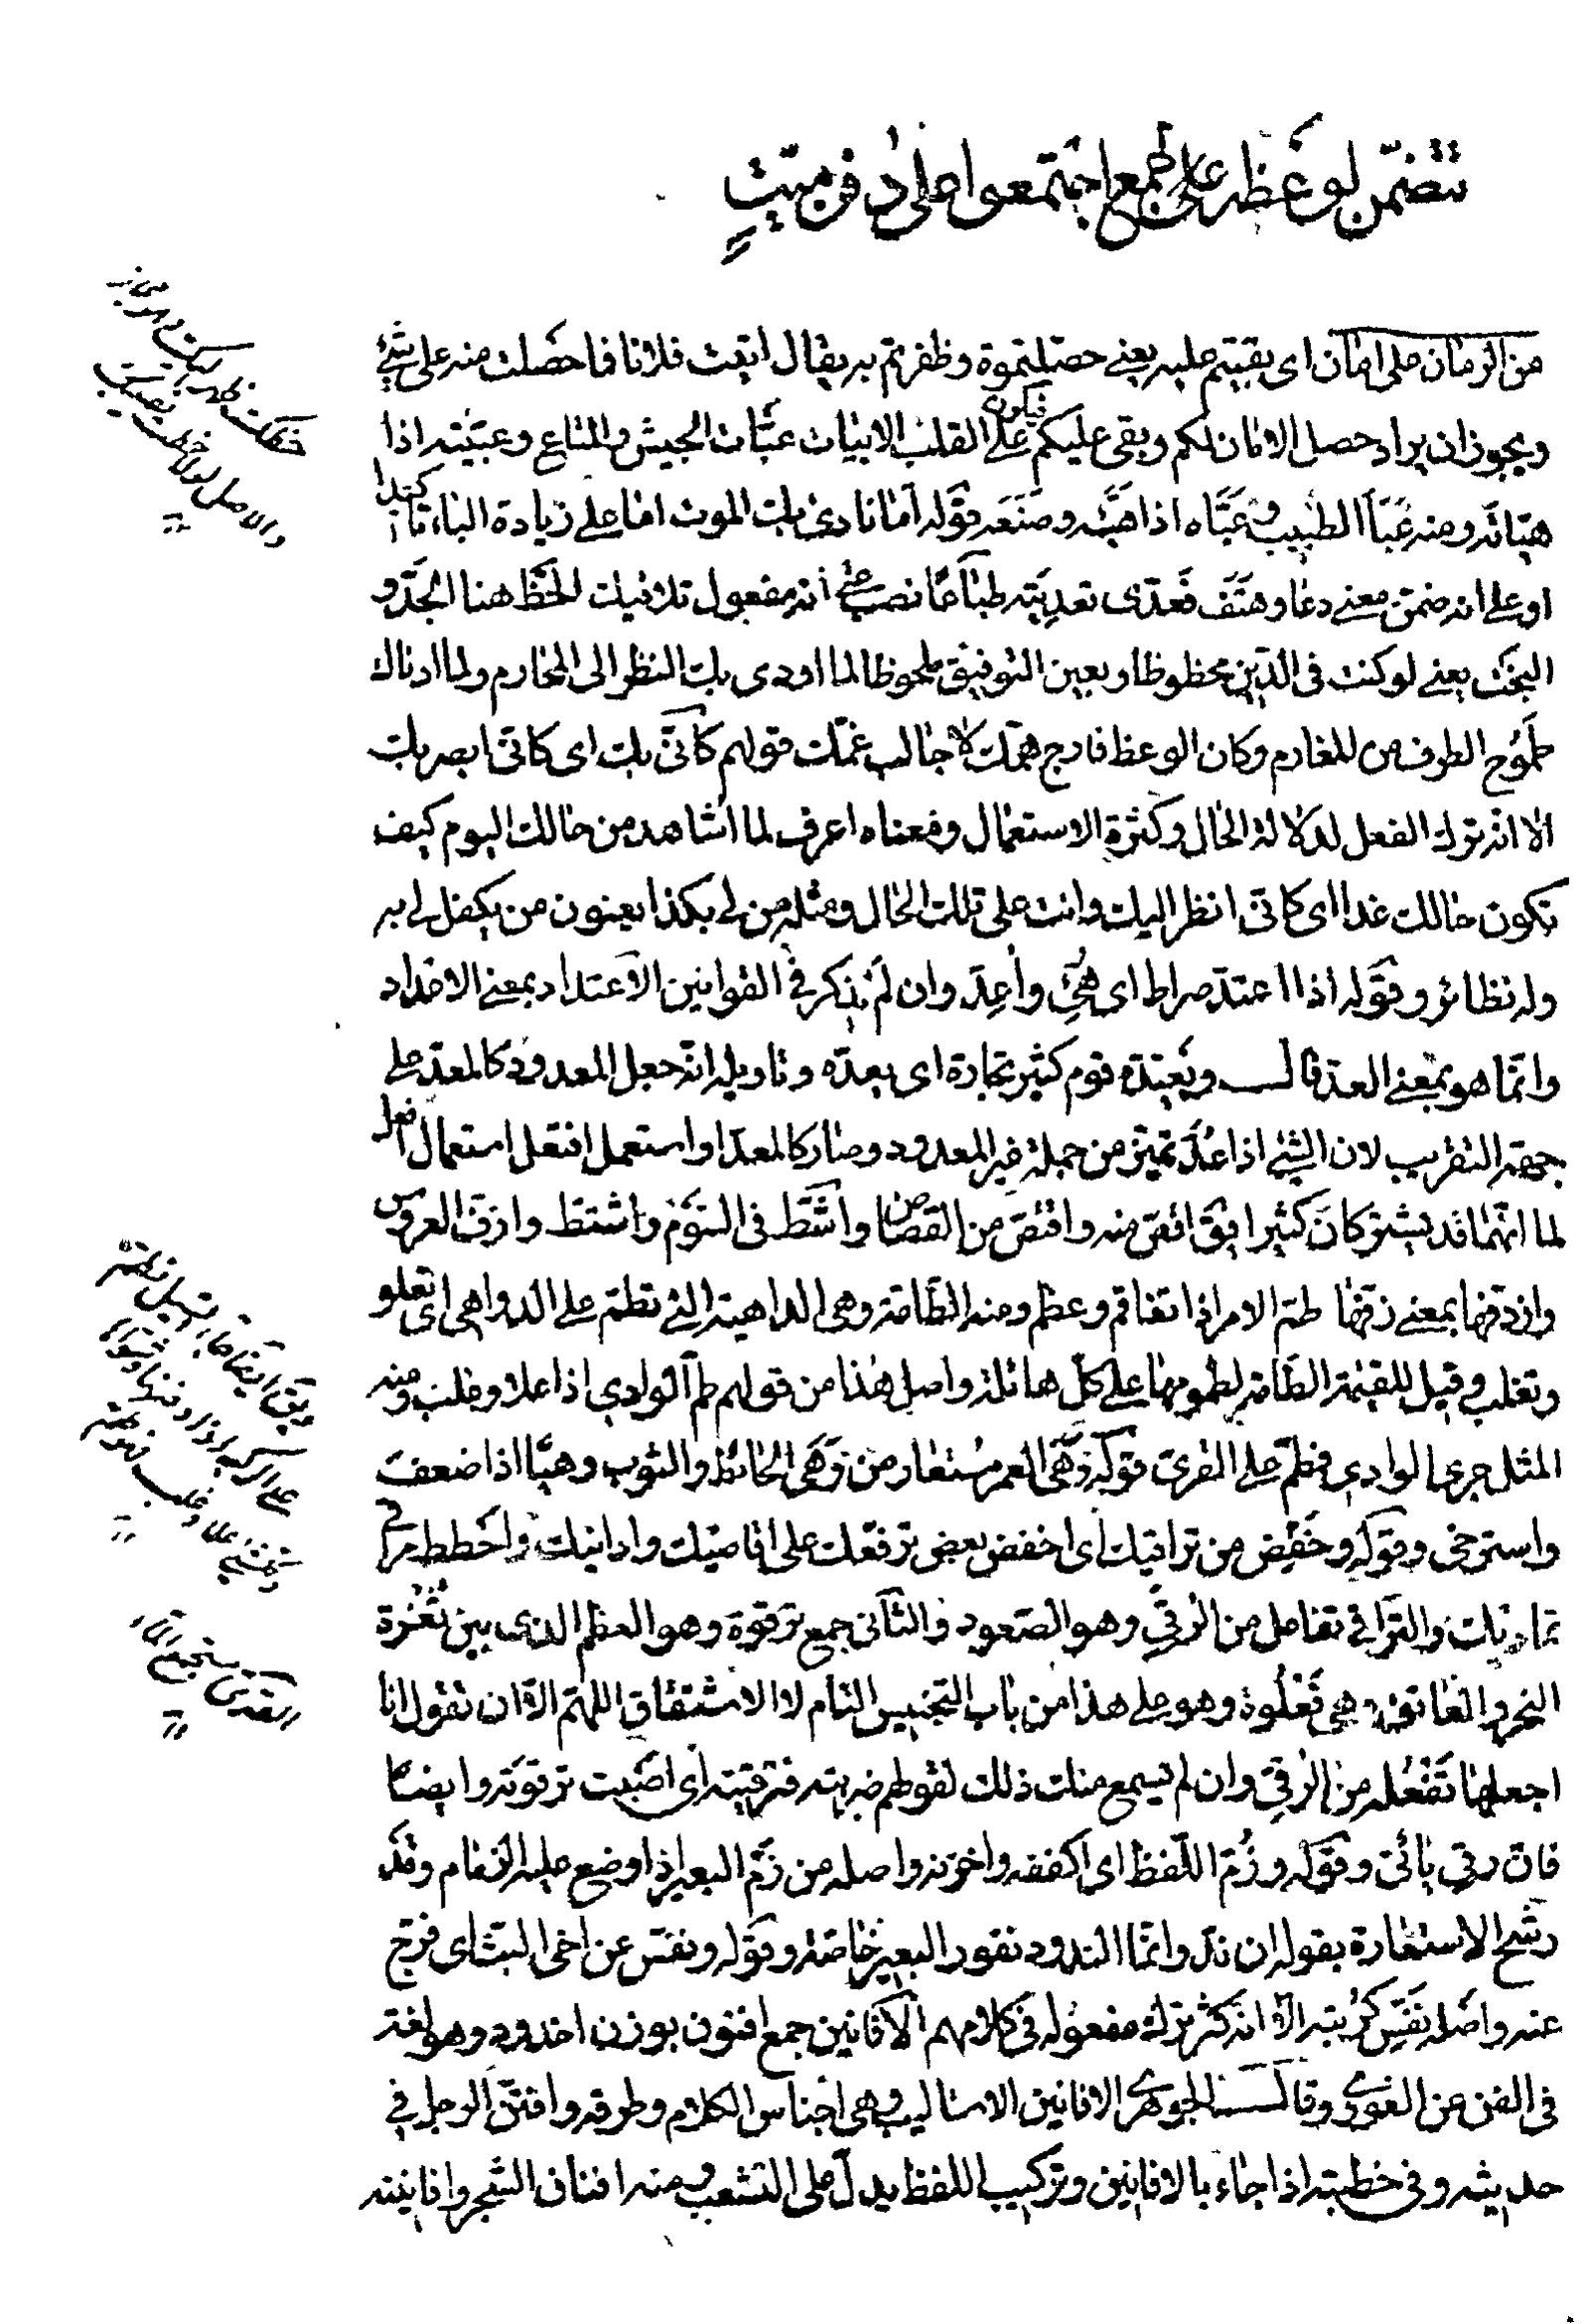 تتضمّن لوعظه على جمع اجتمعوا على دفن ميّتٍ
من الزمان على امان اى بقيتم عليه يعنى حصلتموة وظفرتم به يقال ابقيت فلانا فما حصلت منه على شئ
ويجوز ان يراد حصل الامان لكم وبقى عليكم فيكون على القلب الابيات عبّات الجيش والمتاع وعبّيته اذا
هيّاته ومنه عَبَأ الطيب وعبّاه اذا هيّأه وصنعه قوله اما نادى بك الموت اما على زيادة الباء تاكيدا
او على انه ضمن معنى دعا وهتف فعدّى تعديته طباعا نصب على انه مفعول تلافيك الحظّ هنا الجَدّ و
البخت يعنى لو كنت فى الدّين محظوظا وبعين التوفيق ملحوظا لما اودى بك النظر الى المحارم ولما ادناك
طموح الطرف من المغارم وكان الوعظ فارج همّك لا جالب غمّك قولهم كأنّى بك اى كانّى ابصر بك
الا انّه ترك الفعل لدلالة الحال وكثرة الاستعمال ومعناه اعرف لما اشاهد من حالك اليوم كيف
تكون حالك غدا اى كانّى انظر اليك وانت على تلك الحال ومثله من لى بكذا يعنون من يكفل لى به
وله نظائر وقوله اذا اعتدّ صراط اى هُيّئ واُعِدّ وان لم يذكر فى القوانين الاعتداد بمعنى الاعداد
وانّما هو بمعنى العدّ قال ويعتدّه قوم كثير تجارة اى يعدّه وتاويله انّه جعل المعدود كالمعدّ على
جهة التقريب لان الشئ اذا عُدّ تميّز من جملة غير المعدود وصار كالمعدّ او استعمل افتعل استعمال افعل
لما انّهما قد يشتركان كثيرا يقَ اقصّ منه واقتصّ من القصاص واشَطّ فى السَوم واشتطّ وازفّ العروس
وازدفّها بمعنى زفّها طمّ الامر اذا تفاقم وعظم ومنه الطّامة وهى الداهية التى تطمّ على الدواهى اى تعلو
وتغلب وقيل للقيمة الطّامة لطمومها على كلّ هائلة واصل هذا من قولهم طمّ الوادى اذا علا وغلب ومنه
المثل جرى الوادى فطمّ على القرى قوله وَهَى العمر مُستعار من وَهَى الحائط والثوب وهيًا اذا ضعف
واسترخى وقوله وخفّض من تراقيك اى اخفض بعض ترفّعك على اقاصيك وادانيك واحطط من
تماديك والتراقى تفاعل من الرُقىّ وهو الصعود والثانى جمع ترقوة وهو العظم الذى بين ثُغْرَة
النحر والعاتق وهى فَعْلُوة وهو على هذا من باب التجنيس التام لا الاشتقاق اللهمّ الا ان تقول انا
اجعلها تَفْعُله من الرقىّ وان لم يسمع منك ذلك لقولهم ضربته فترقيته اى اصَبت ترقوته وايضا
فان رقى يائىّ وقوله وزُمّ اللّفظ اى اكففه واخزنه واصله من زَمّ البعير اذا وضع عليه الزمام وقَد
رشّح الاستعارة بقوله ان ندّ وانما الندود نفور البعير خاصّة وقوله ونفّس عن اخى البثّ اى فرّج
عنه واصله نفّس كُربته الا انّه كثر ترك مفعوله فى كلامهم الافانين جمع افنون بوزن اخدود وهو لغة
فى الفن عن الغورى وقال الجوهرى الافانين الاساليب وهى اجناس الكلام وطرقه وافتنّ الرجل فى
حديثه وفى خطبته اذا جاء بالافانين وتركيب اللفظ يدلّ على التشعب ومنه افنان الشجر وافانينه